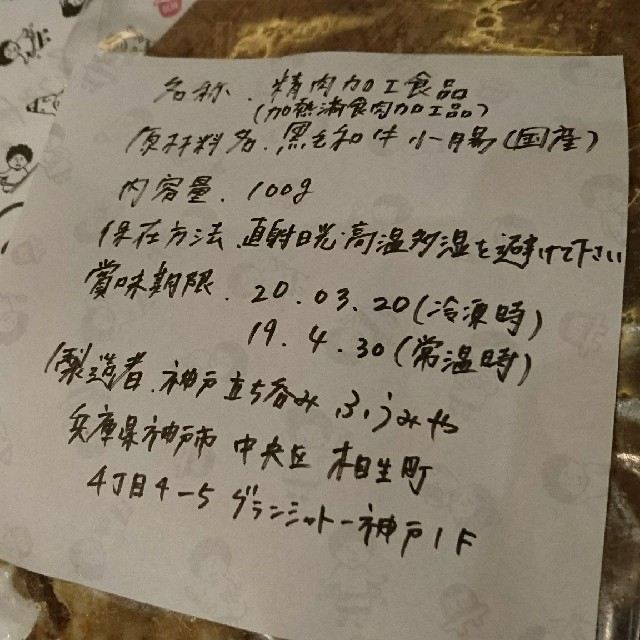 名称. 精肉加工食品
(加熱済食肉加工品)
原材料名. 黒毛和牛小腸(国産)
内容量. 100g
保存方法 直射日光高温多湿を避けて下さい
賞味期限. 20.03.20(冷凍時)
19.4.30(常温時)
製造者. 神戸立ち呑み ふうみや
兵庫県神戸市 中央区 相生町
4丁目4-5 グランシャトー神戸1F